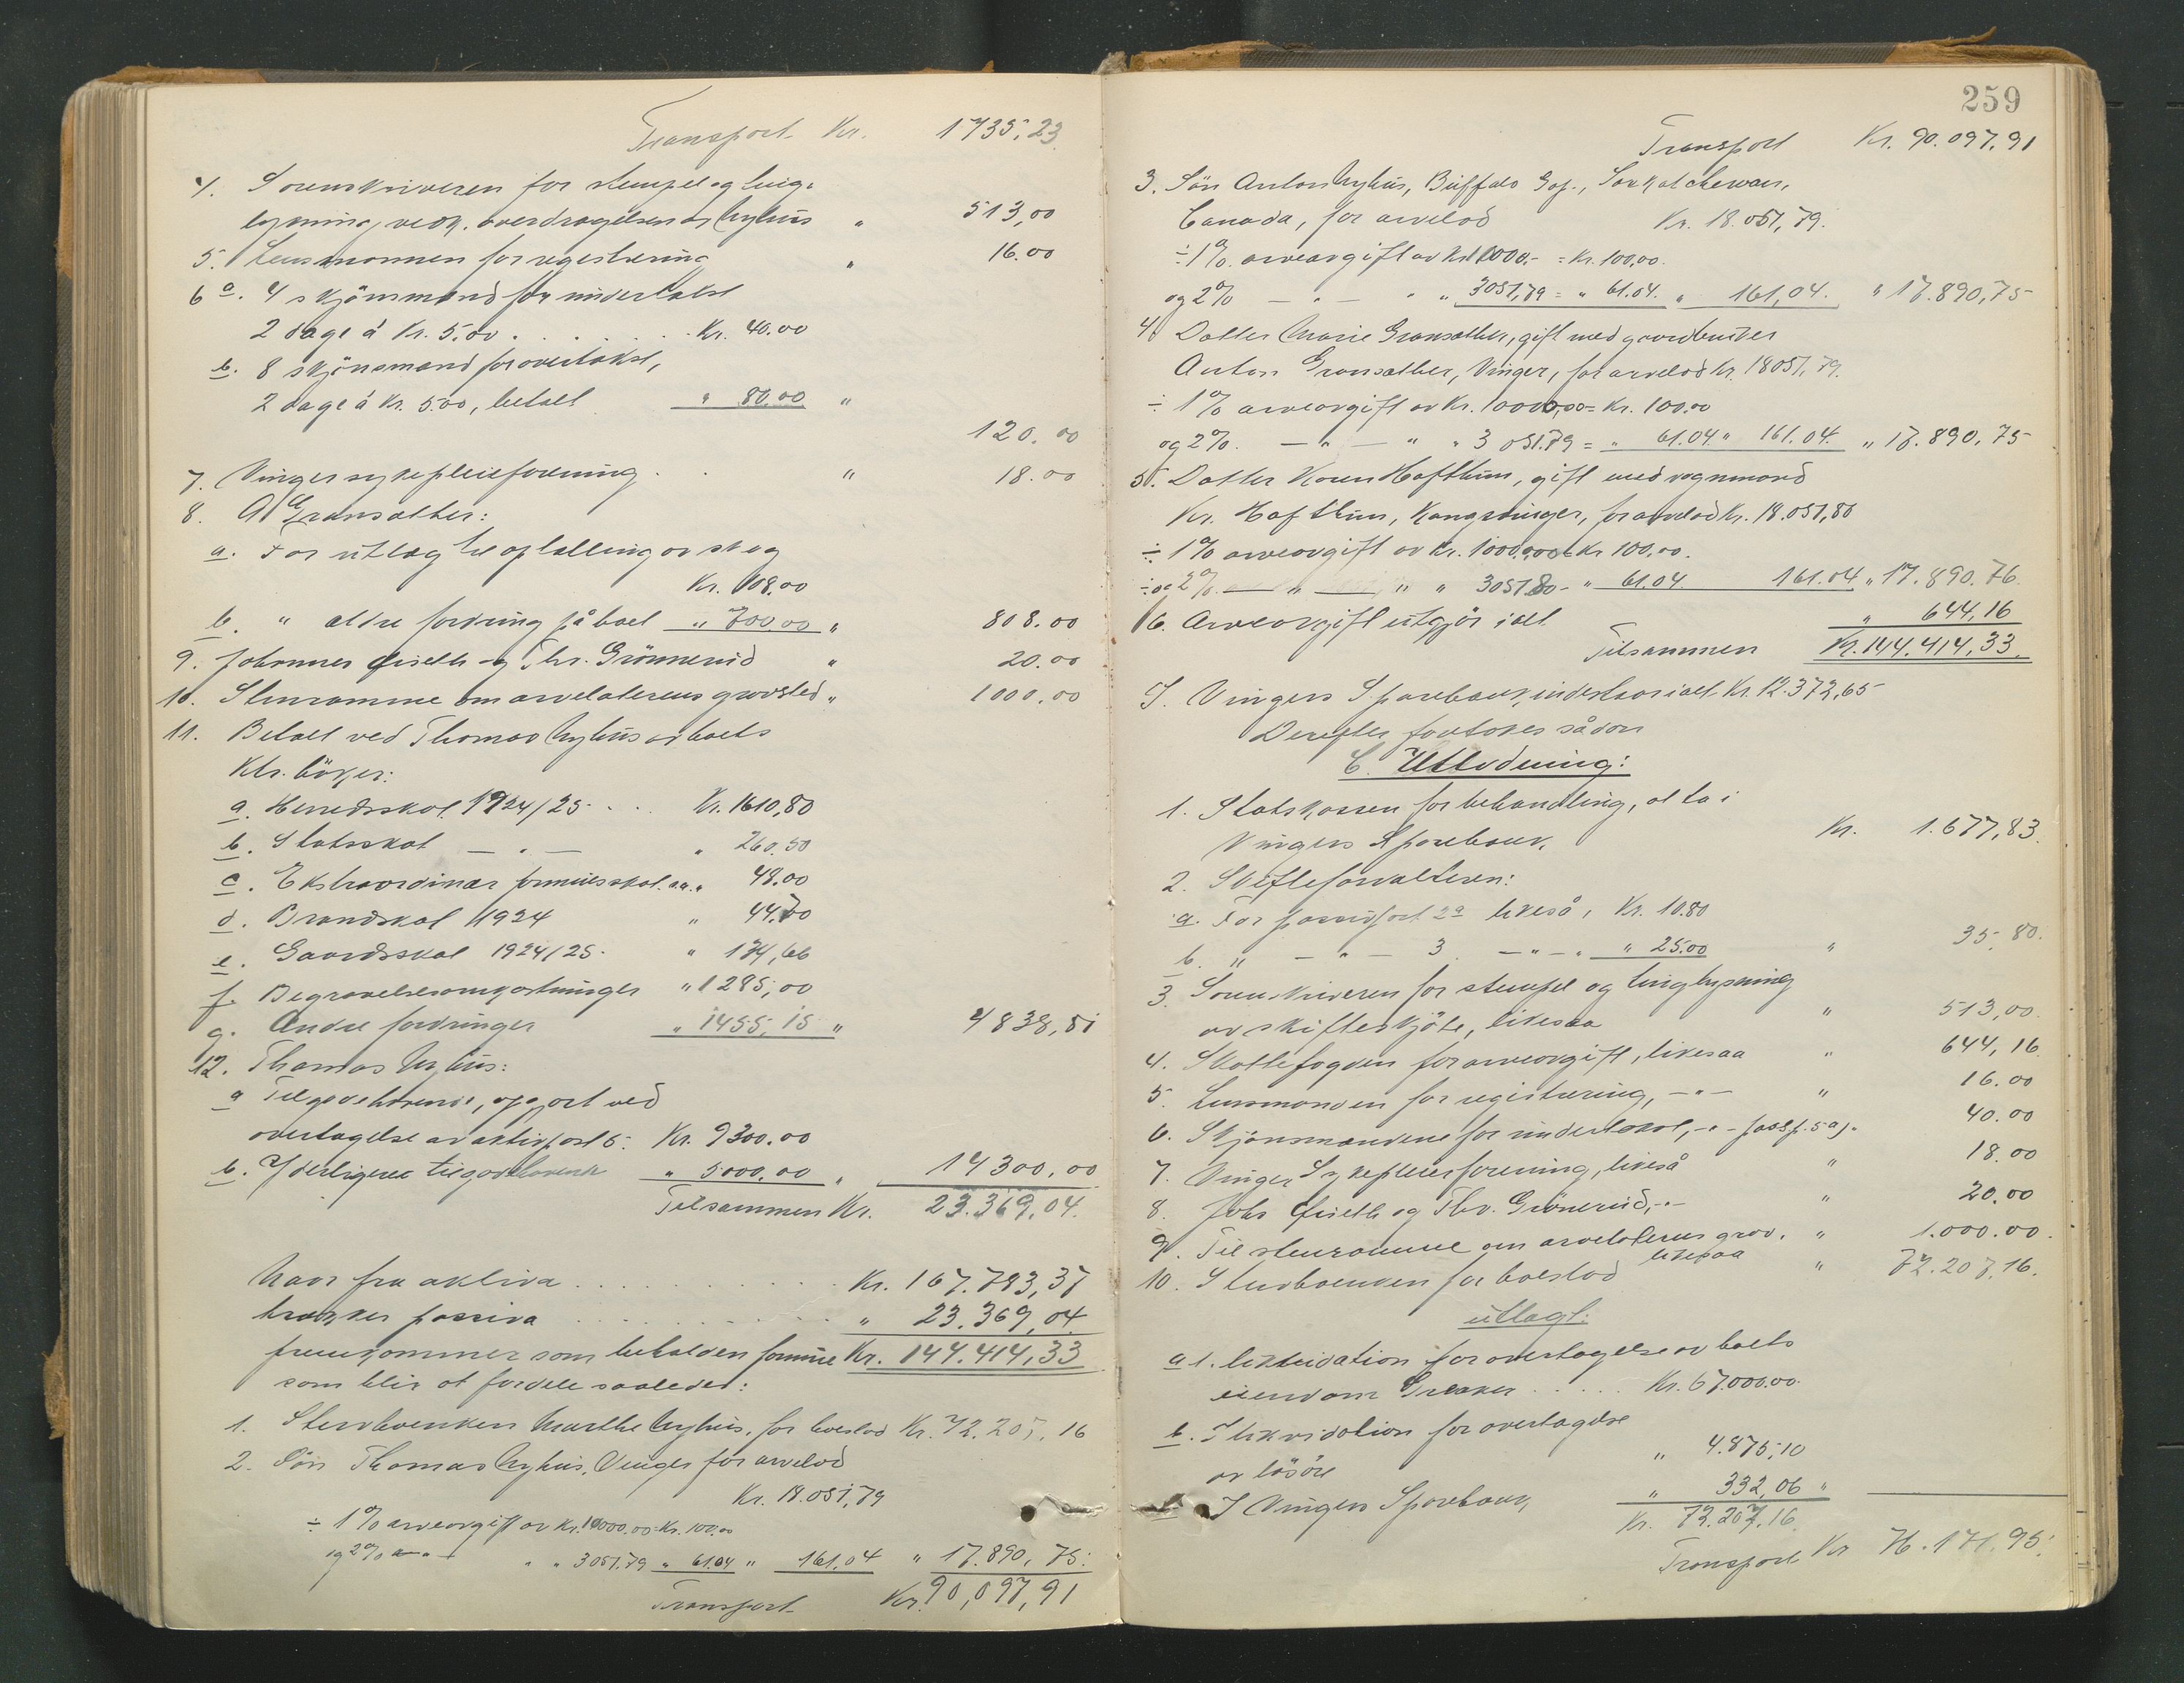 Transport Kr. 1735,23
4. Sorenskriveren for stempel og ting-
lysning vedk. overdragelsen av Nyhus " 513,00
5. Lensmannen for registrering " 16.00
6 a. 4 skjönsmænd for undertakst
2 dage á Kr. 5.00 . . . . . Kr. 40.00
b. 8 skjönsmænd for overtakst,
2 dage á Kr. 5.00, betalt " 80.00 "
120.00
7. Vinger sykepleieforening . . " 18.00
8. A Gransæther:
a. For utlæg til optælling av skog
Kr. 108.00
b. " ældre fordring på boet " 700.00 " 808.00
9. Johannes Fiseth og Thv. Grönnerud " 20.00
10. Stenramme om arvelaterens gravsted " 1000.00
11. Betalt ved Thomas Nyhus av boets
Ktr. böker:
a. Herredsskat 1924/25 . . . Kr. 1610,80
b. Statsskat — " — " 260.50
c. Ekstraordinær formuesskat. a.a. " 48.00
d. Brandskat 1924 " 44.70
e. Gaardsskat 1924/25 " 134,66
f. Begravelsesomkostninger " 1285,00
g. Andre fordringer " 1455,15 " 4838,81
12. Thomas Nyhus:
a Tilgodehavende, opgjort ved
overtagelse av aktivpost 5. Kr. 9300.00
b. Yderligere tilgodehavende " 5000.00 " 14300,00
Tilsammen Kr. 23.369,04.
Naar fra aktiva . . . . . . . . Kr. 167.783,37
trækkes passiva . . . . . . . . " 23.369,04
fremkommer som beholden formue Kr. 144.414,33
som blir at fordele saaledes:
1. Stervboenken Marthe Nyhus, for boeslod Kr. 72.207,16
2. Sön Thomas Nyhus, Vinger for arvelod
Kr. 18.051,79
÷ 1% arveavgift av Kr. 10000.00 = Kr. 100.00
og 2% — " — " " 3051.79 " 61.04 " 161.04 " 17.890,75.
Transport Kr. 90,097,91
259
Transport Kr. 90.097,91
3. Sön Anton Nyhus, Buffalo Gap., Saskatchewan,
Canada, for arvelod Kr. 18.051,79.
÷ 1% arveavgift av Kr. 10000.- = Kr. 100.00.
og 2% — " — " " 3051,79 = " 61.04. " 161,04. " 17.890,75
4. Datter Marie Gransæther, gift med gaardbruker
Anton Gransæther, Vinger, for arvelod Kr. 18051,79.
÷ 1% arveavgift av Kr. 10000,00 = Kr. 100.00
og 2%. — " — " " 3051.79 = " 61.04. " 161.04. " 17.890,75
5. Datter Karen Hafthun, gift med vognmand
Kr. Hafthun, Kongsvinger, for arvelod Kr. 18.051,80
÷ 1% arveavgift av Kr. 10000.00 = Kr 100,00.
÷ og 2%. — " — " " 3051.80 - " 61.04. 161.04 " 17.890.76.
6. Arveavgift utgjör ialt " 644,16
Tilsammen Kr. 144.414,33.
I Vingers Sparebank, indestaar ialt Kr. 12.372,65
Derefter foretokes sådan
C. Utlodning:
1. Statskassen for behandling, at ta i
Vingers Sparebank. Kr. 1.677,83.
2. Skifteforvalteren:
a. For passivpost 2a likeså, Kr. 10.80
b. " — " — 3. — " — " " 25.00 " 35,80.
3. Sorenskriveren for stempel og tinglysning
av skifteskjöte, likesaa " 513,00.
4. Skattefogden for arveavgift, likesaa " 644,16.
5. Lensmanden for registrering, — " — " 16.00
6. Skjönsmændene for undertakst, — " — passp. 5 a). " 40.00
7. Vinger Sykepleieforening, likeså " 18.00
8. Johs Fiseth og Thv. Grönerud, - " - " 20.00
9. Til stenramme om arvelaterens grav, " 1.000.00.
likesaa
10. Stervboenken for boeslod " 72.207,16.
utlagt:
a 1. likvidation for overtagelse av boets
eiendom Greaker . . . . . Kr. 67.000.00.
b. I likvidation for overtagelse
av lösöre " 4.875,10
I Vingers Sparebank " 332,06 "
Kr. 72.207,16.
Transport Kr 76.171.95.